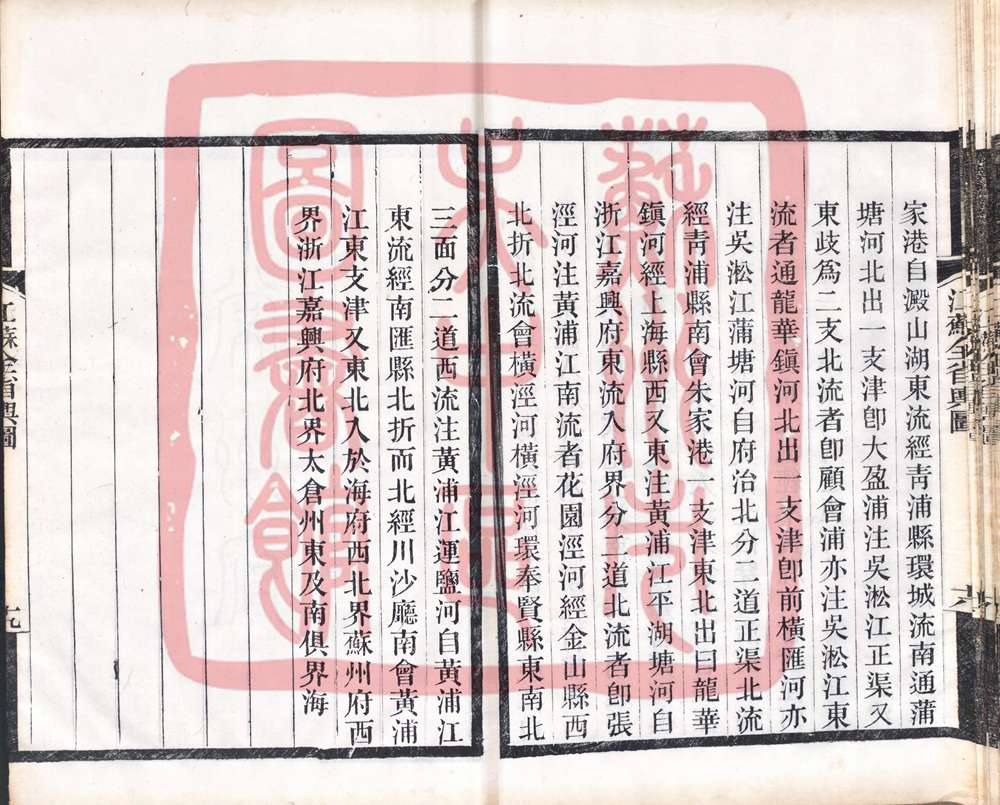 家港自澱山湖東流經青浦縣環城流南通蒲
塘河北出一支津卽大盈浦注吳淞江正渠又
東歧爲二支北流者卽顧會浦亦注吳淞江東
流者通龍華鎮河北出一支津卽前橫匯河亦
注吳淞江蒲塘河自府治北分二道正渠北流
經青浦縣南會朱家港一支津東北出曰龍華
鎮河經上海縣西又東注黃浦江平湖塘河自
浙江嘉興府東流入府界分二道北流者卽張
涇河注黃浦江南流者花園涇河經金山縣西
北折北流會橫涇河橫涇河環奉賢縣東南北
江蘇全省輿圖
三面分二道西流注黃浦江運鹽河自黃浦江
東流經南匯縣北折而北經川沙廳南會黃浦
江東支津又東北入於海府西北界蘇州府西
界浙江嘉興府北界太倉州東及南俱界海
江蘇全省輿圖
九
圖書館